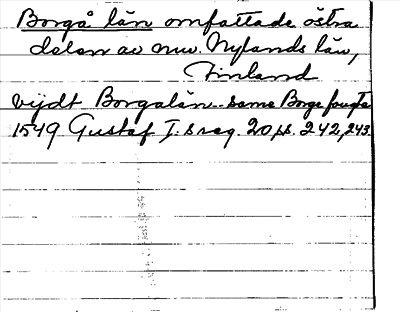 Borgå län omfattade östra
delen av nuv. Nylands län,
Finland
vijdt Borgalän.. same Borge
1549 Gustaf I:s reg. 20, ss. 242, 243